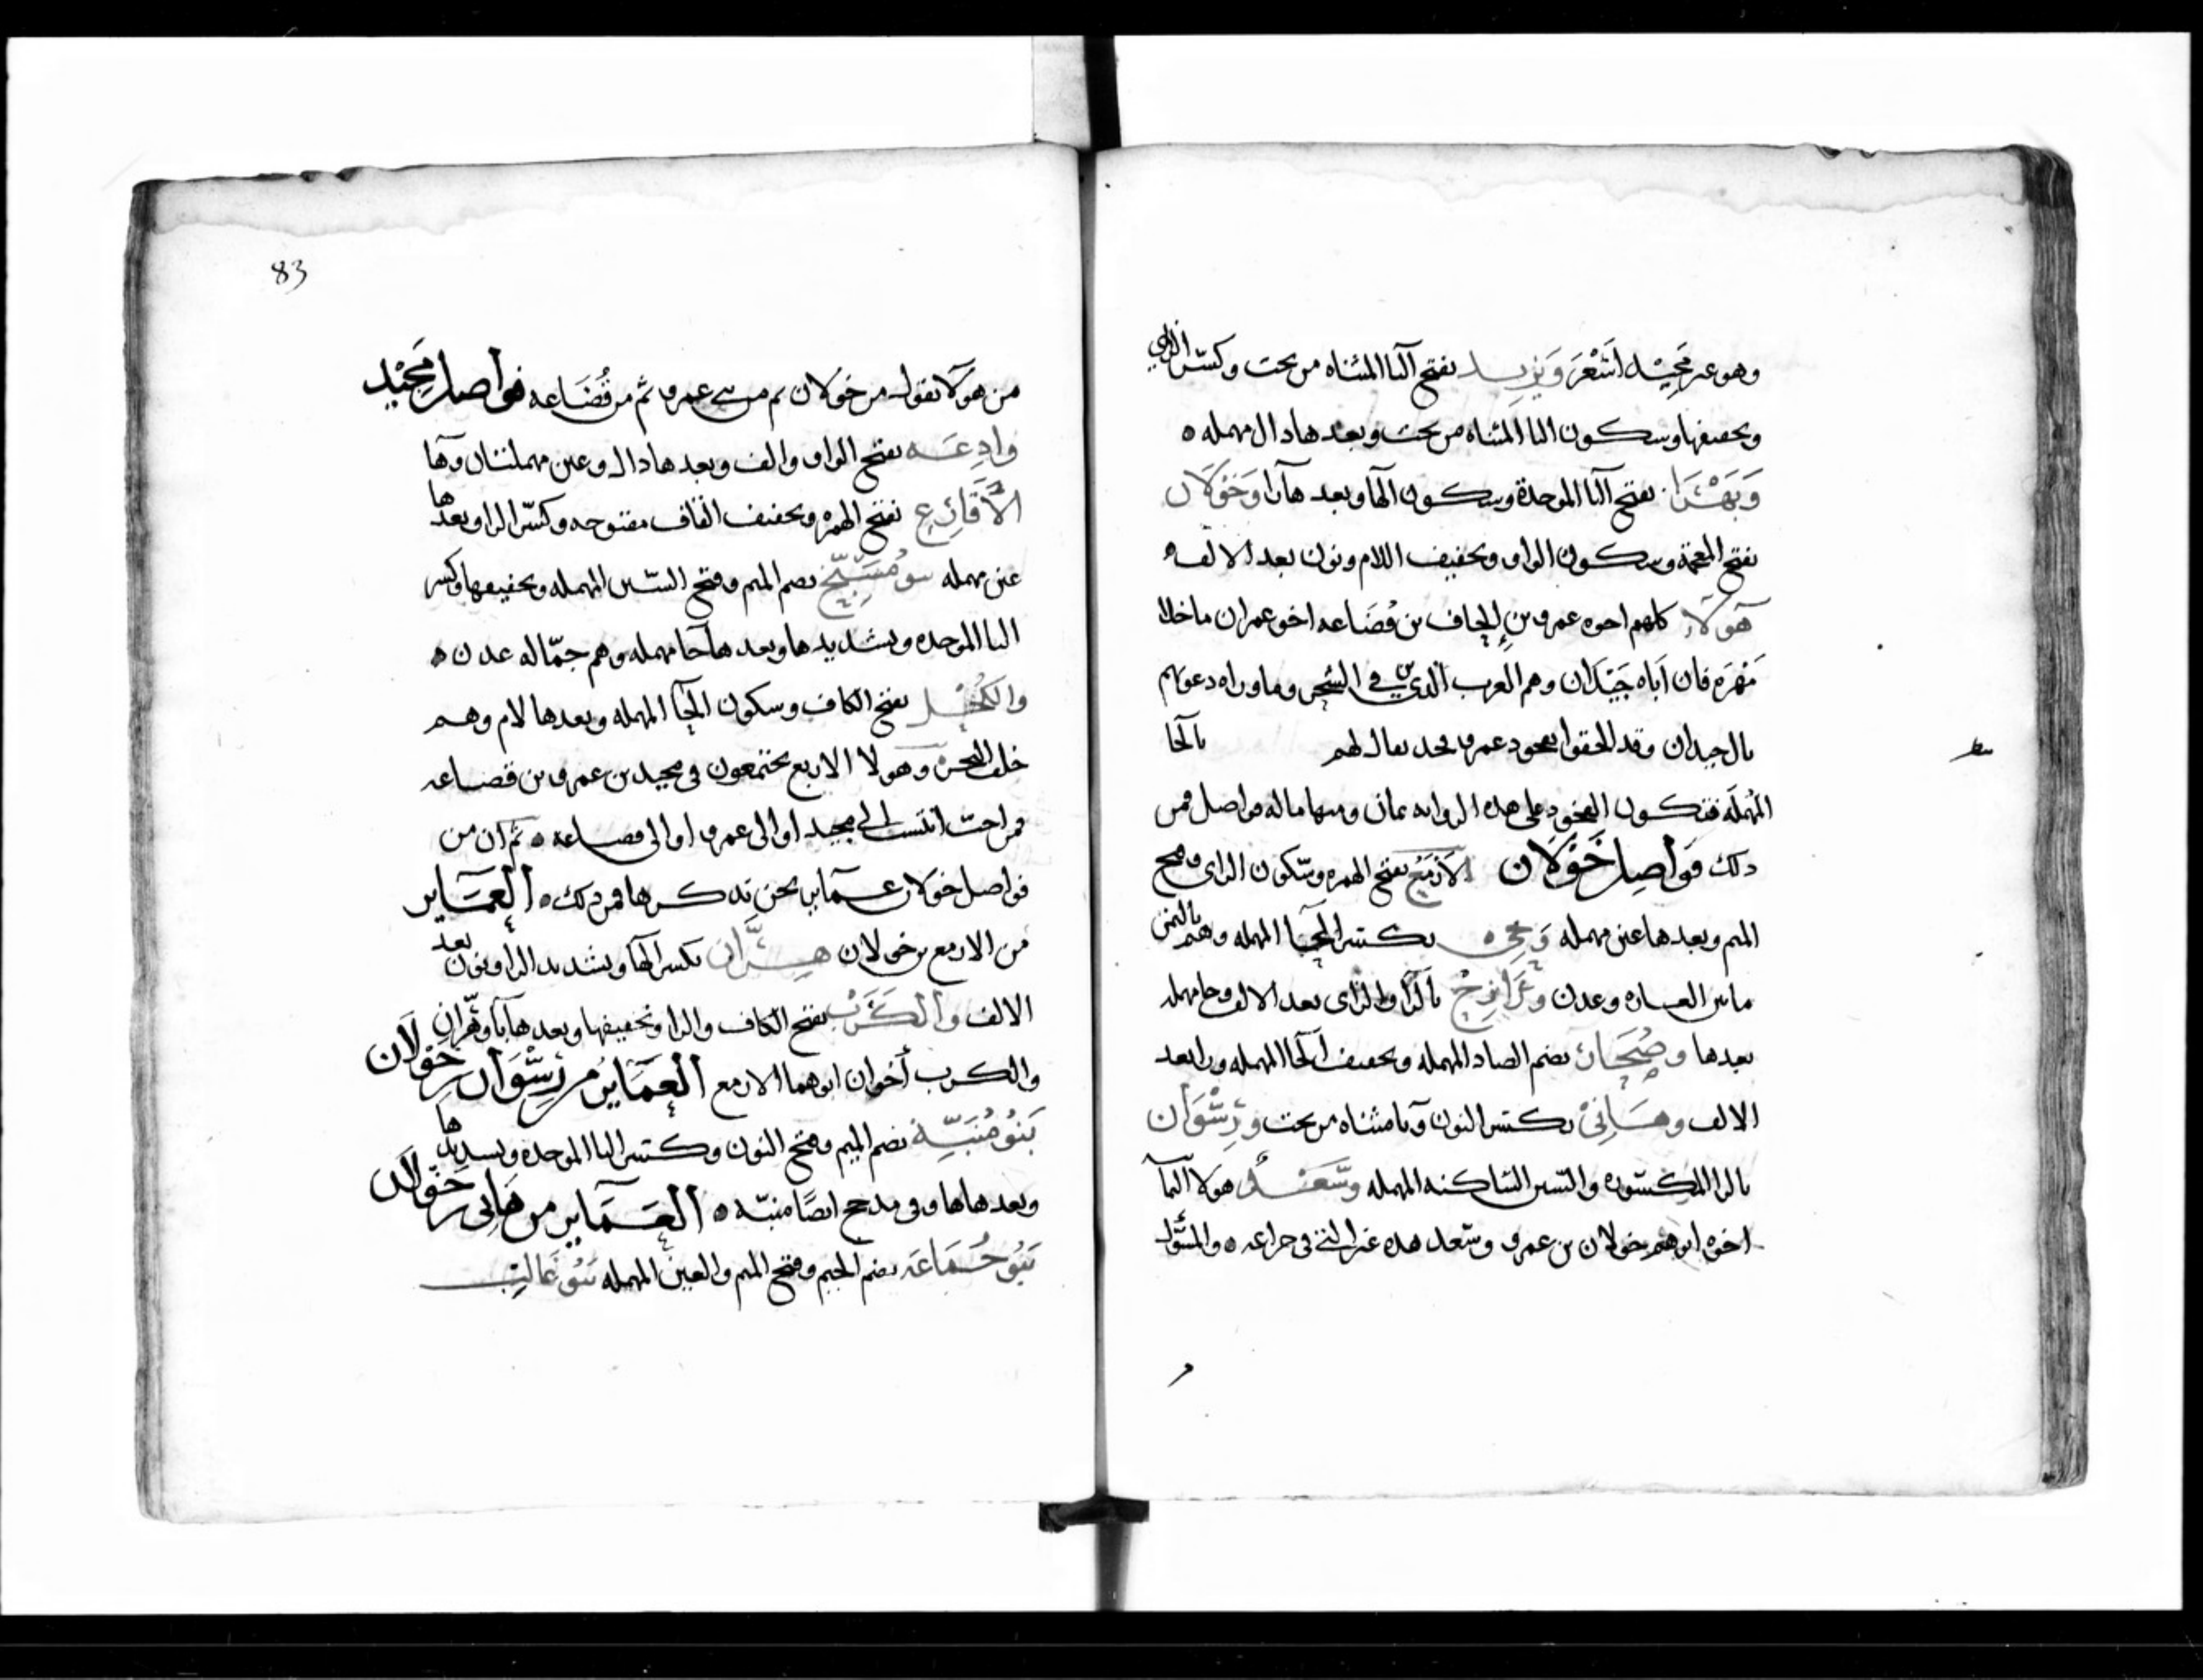 وهو غير مَجِيْد اشْعَرَ وَيَزِيد بفتح اليا المثناه من تحت وكسر الزاي
وتخفيفها وسكون اليا المثناه من تحت وبعدها دال مهمله ه
وَبَهْرَا بفتح البا الموحدة وسكون الها وبعدها را وَخَوْلَان
بفتح المعجمة وسكون الواو وتخفيف اللام ونون بعد الالف ه
هَوُلَاءِ كلهم اخوه عمرو بن إلحاف بن قُضَاعه اخو عمران ما خلا
مَهْرَه فان اَباه حَيْدَان وهم العرب الذين في الشحر وما وراه دعوتهم
بال حيدان وقد لحقوا بعمود عمرو فحد يقال لهم بالحا
المهمله فتكون الفخود على هذه الروايه ثمان ومنها ماله فواصل فمن
ذلك فَوَاصِل خَوْلَان الاَزْمَع بفتح الهمزه وسكون الزاي وفتح
الميم وبعدها عين مهمله وَحي ه بكسر الحا المهمله وهم باليمن
مابين العباره وعدن وَرَازِحْ بالرا والزاى بعد الالف وحا مهمله
بعدها وصُحَار بضم الصاد المهمله وتخفيف الحا المهمله ورا بعد
الالف وهَانِئ بكسر النون ويا مثناه من تحت ورِشْوَان
بالرا المكسوره والسين الساكنه المهمله وسَعْد هولا الثما
اخوه ابوهم خولان بن عمرو وسعد هذه غير التي في حراعه ه والمسَّول
83
من هَوُلَا تقول من خولان ثم من بني عمرو ثم من قُضَاعه فواصل مَجِيْد
وادِعَه بفتح الواو والف وبعدها دال وعين مهملتان وها
الاَقَارِع بفتح الهمزه وتخفيف القاف مفتوحه وكسر الرا وبعدها
عين مهمله بنو مُسَبِّح بضم الميم وفتح السين المهمله وتخفيفها وكسر
البا الموحده وتشديدها وبعدها حا مهمله وهم جمّاله عدن ه
والكَحْل بفتح الكاف وسكون الحا المهمله وبعدها لام وهم
خلف البحر وهولا الاربع يجتمعون فى مجيد بن عمرو بن قضاعه
فمن احب انتسب الى مجيد او الى عمرو او الى قضاعه ه ثم ان من
فواصل خولان عماير نحن نذكرها فمن ذلك ه العَمَاير
من الازمع بن خولان هِرَّان بكسر الها وتشديد الرا ونون بعد
الالف والكَرَبْ بفتح الكاف والرا وتخفيفها وبعدها با وهّران
والكرب أخوان ابوهما الازمع العَمَايرُ من رِشْوَان بن خَوْلَان
بَنُو مُنَبِّه بضم الميم وفتح النون وكسر البا الموحده وتشديدها
وبعدها ها وفى مذحج ايضًا منبّه ه العَمَاير من هَانِى بن خَوْلَان
بَنُو جُمَاعَه بضم الجيم وفتح الميم والعين المهمله بَنُو غَالِب